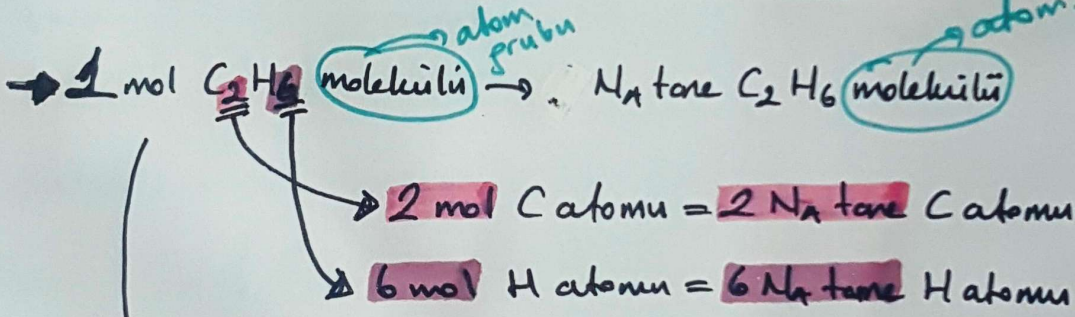 atom grubu atom
→ 1 mol C₂H₆ molekülü → . N_A tane C₂H₆ molekülü
→ 2 mol C atomu = 2 N_A tane C atomu
→ 6 mol H atomu = 6 N_A tane H atomu